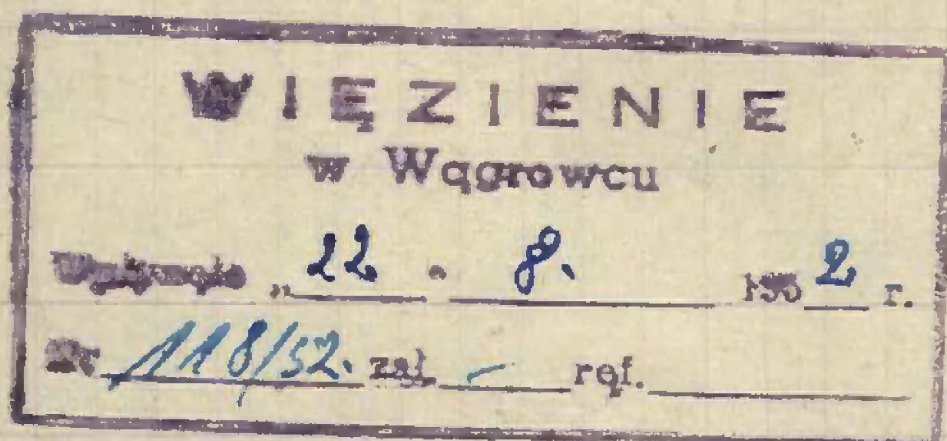 WIĘZIENIE
w Wągrowcu
Wpłynęło „ 22 " 8. 1952 r.
Nr 118/52. zał. - ref.